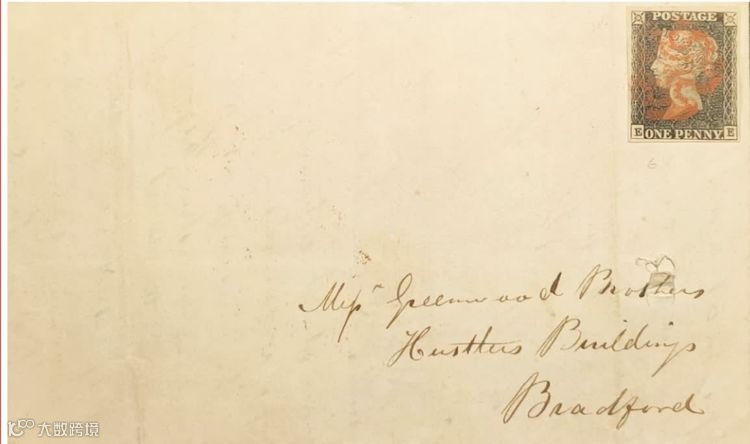 POSTAGE
E ONE PENNY E
6
Messrs Greenwood Brothers
Hustlers Buildings
Bradford
大数跨境